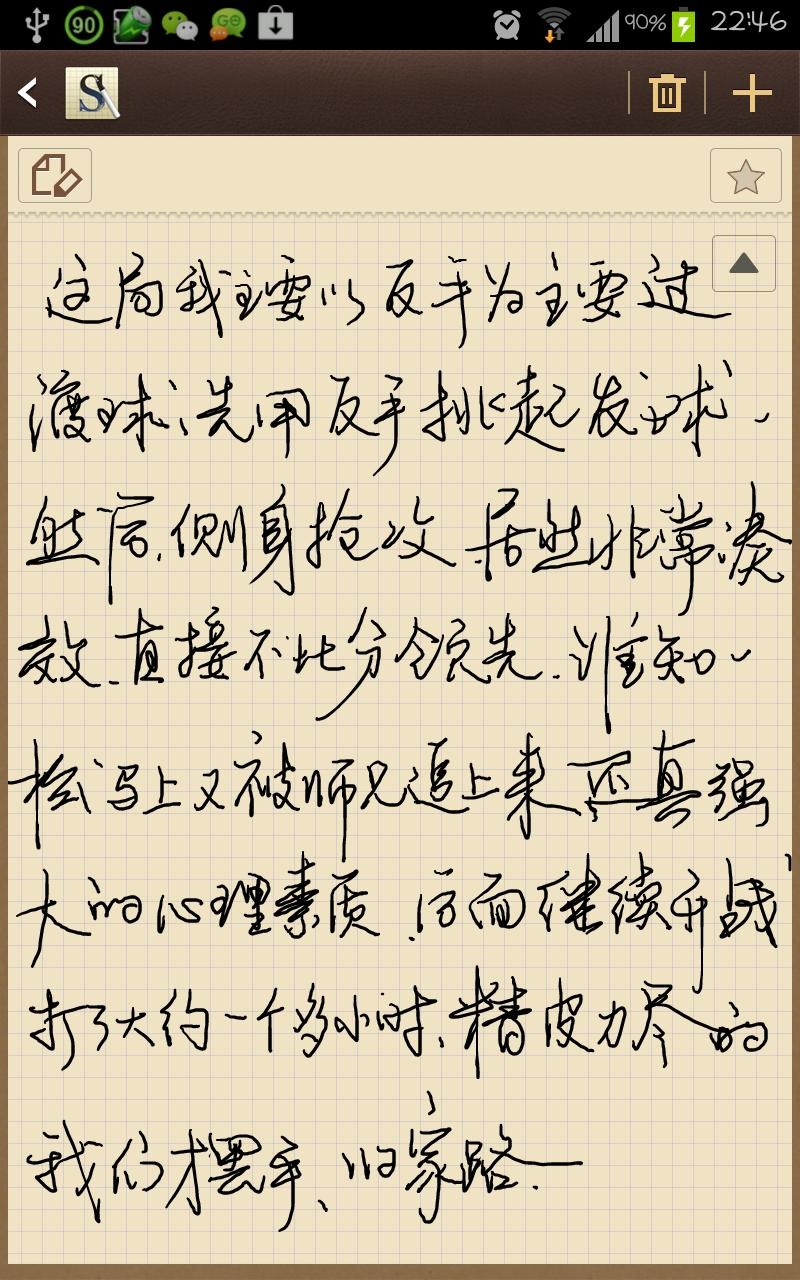 90 GO 90% 22:46
S
这局我主要以反手为主要过
渡球、先用反手挑起发球.
然后.侧身抢攻.居然非常凑
效.直接不比分领先.谁知、
松马上又被师兄追上来还真强
大的心理素质.后面继续开战
打了大约一个多小时.精皮力尽的
我们才摆手、回家路.一